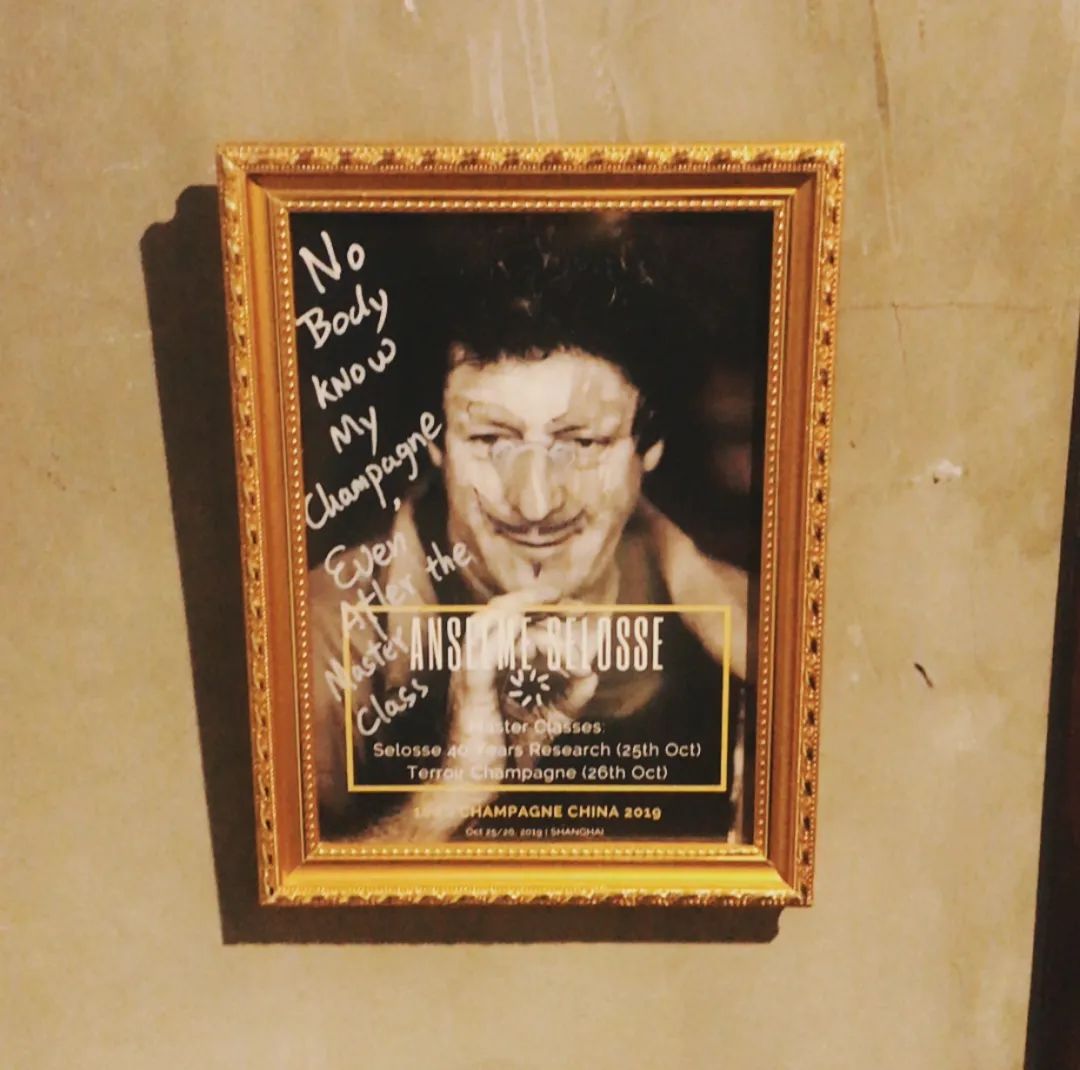 No
Body
know
My
Champagne,
Even
After the
Master
Class
ANSELME SELOSSE
Master Classes:
Selosse 40 Years Research (25th Oct)
Terroir Champagne (26th Oct)
CHAMPAGNE CHINA 2019
Oct 25/26, 2019 | SHANGHAI